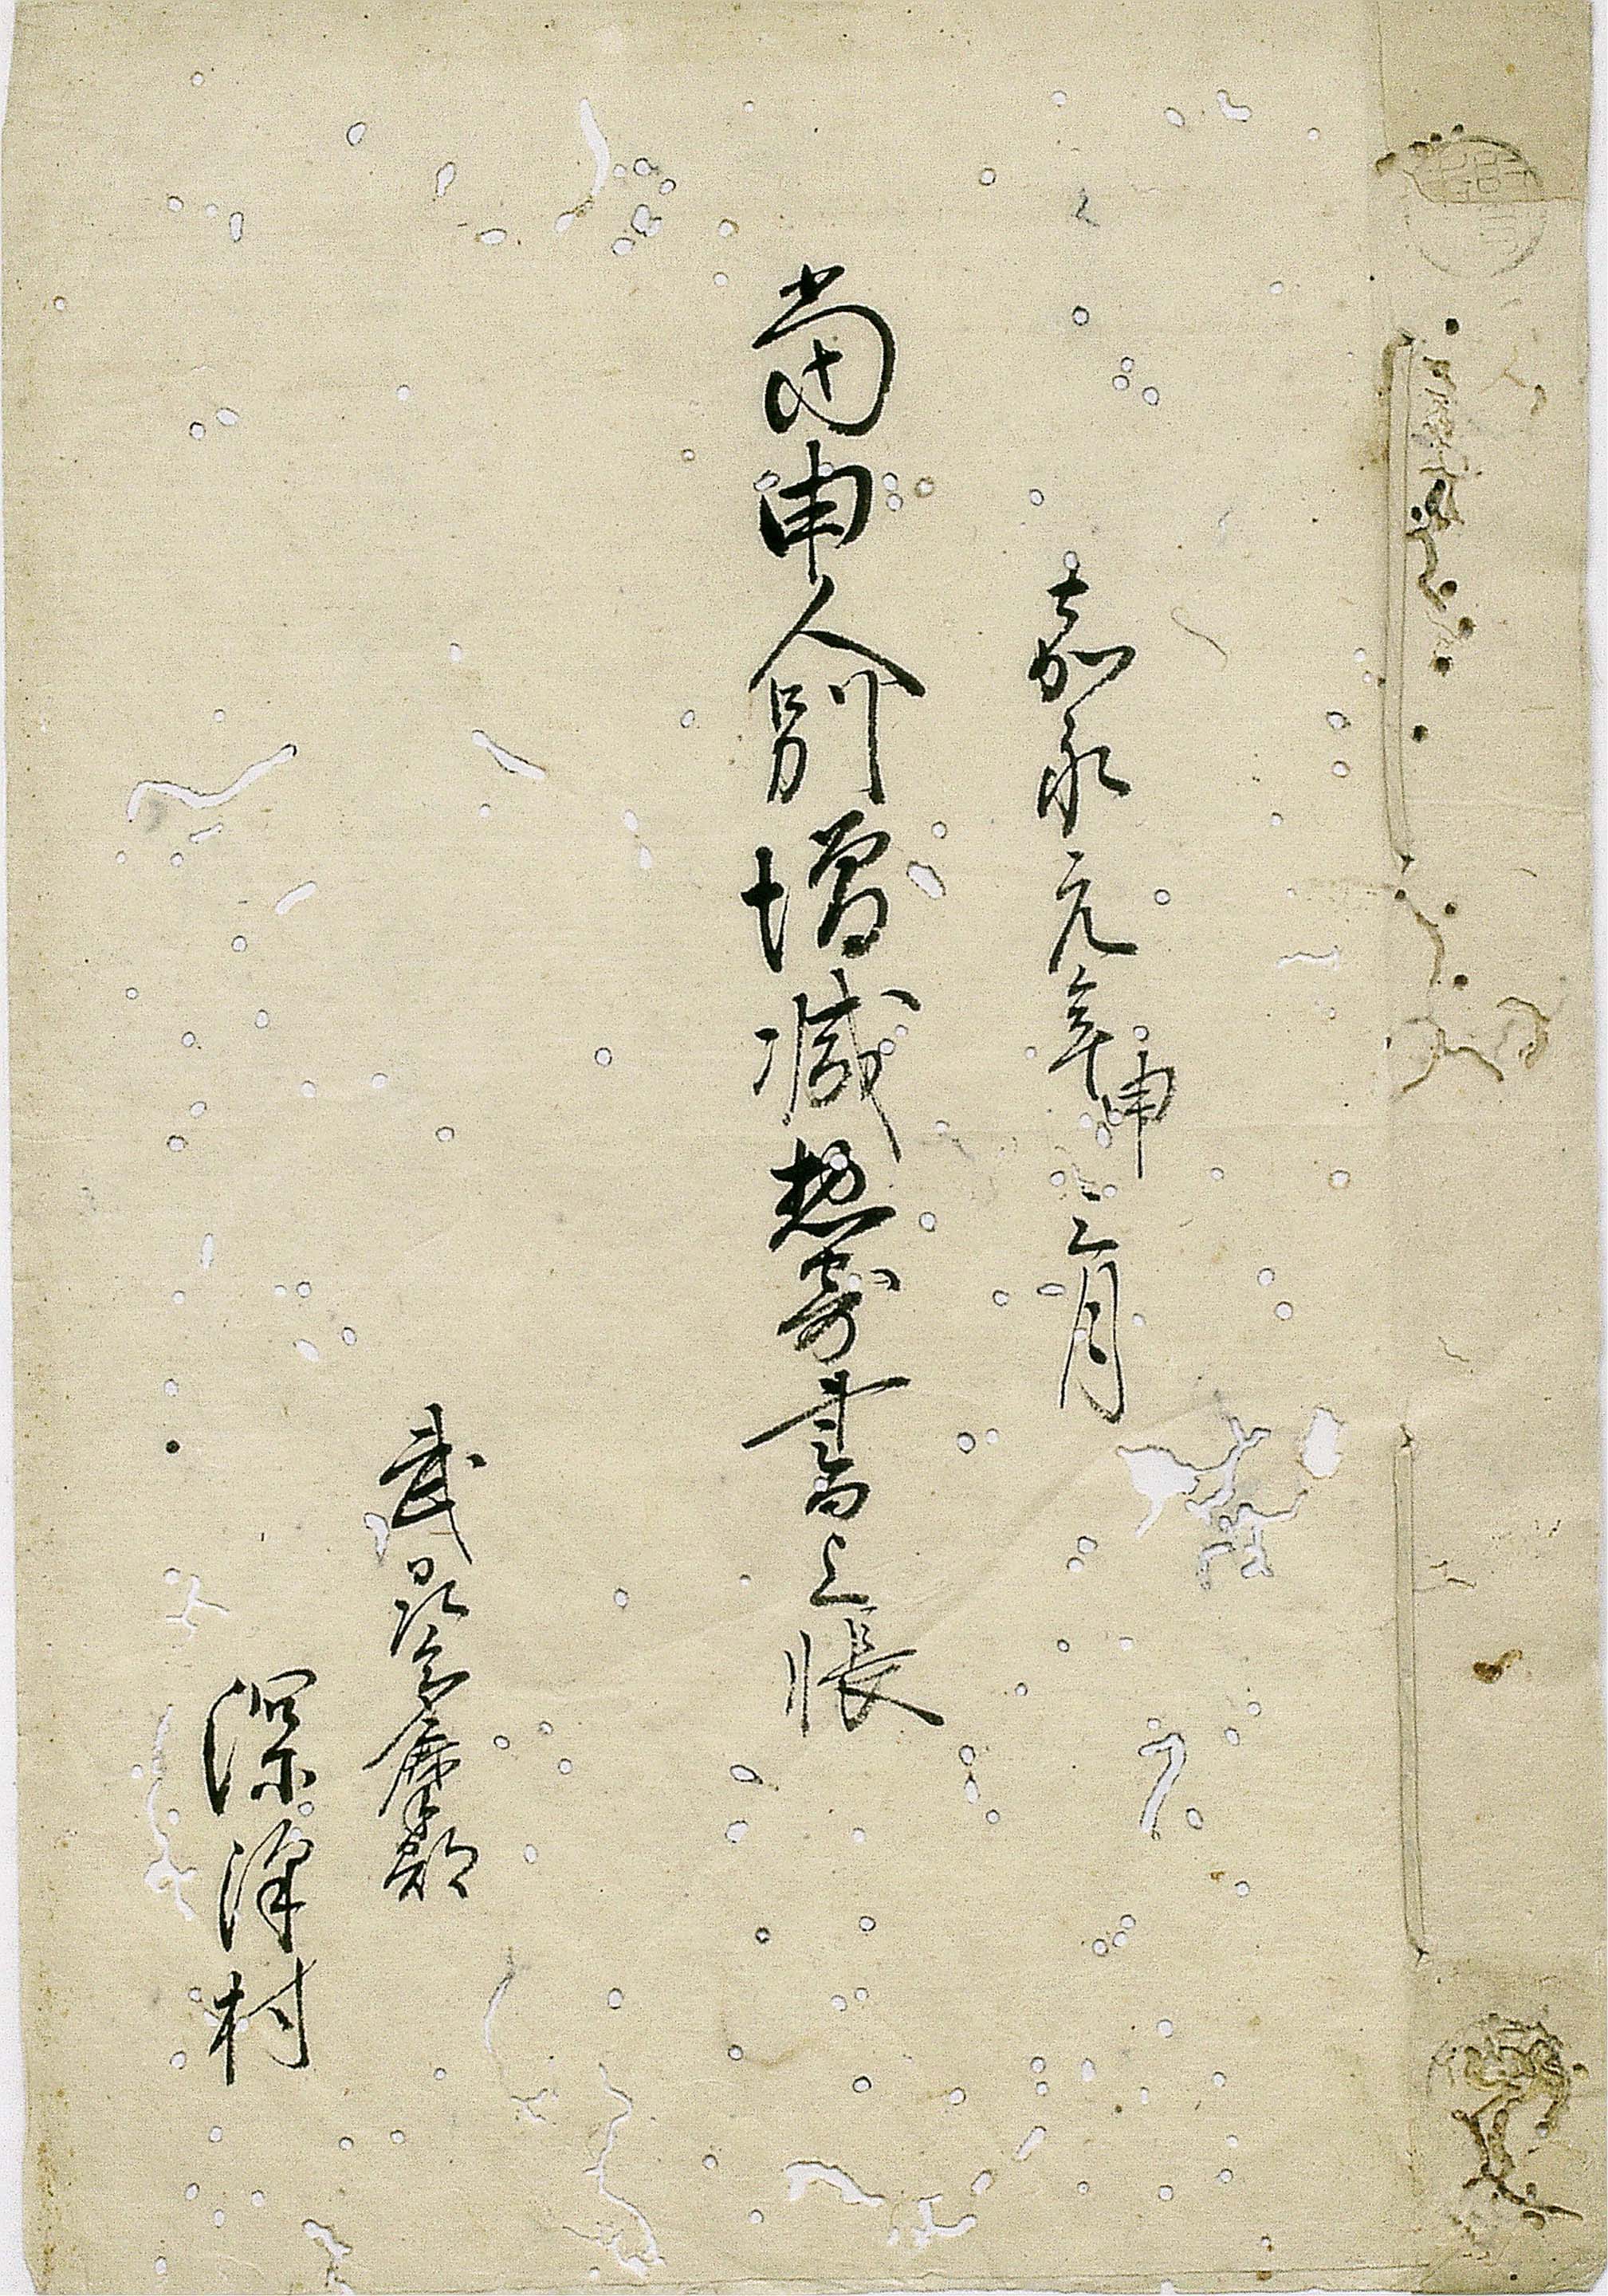 嘉永元年申三月
當申人別増減惣寄書上帳
武刕多摩郡
深沢村